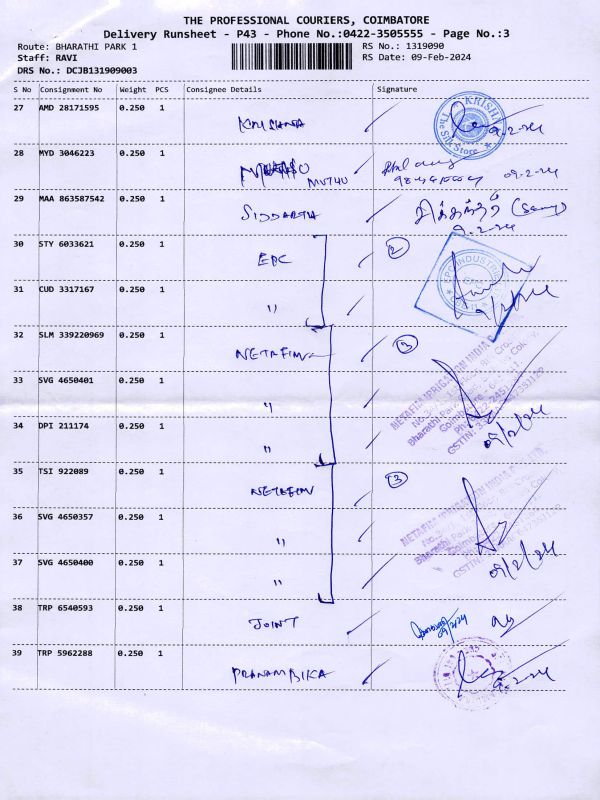 THE PROFESSIONAL COURIERS, COIMBATORE
Delivery Runsheet - P43 - Phone No.:0422-3505555 - Page No.:3
Route: BHARATHI PARK 1 RS No.: 1319090
Staff: RAVI RS Date: 09-Feb-2024
DRS No.: DCJB131909003
S No Consignment No Weight PCS Consignee Details Signature
27 AMD 28171595 0.250 1
KRISHNA 9.2.24
28 MYD 3046223 0.250 1
MUTHU 09.2.24
29 MAA 863587542 0.250 1
SIDDARTH 9.2.24
30 STY 6033621 0.250 1
EPC 2
31 CUD 3317167 0.250 1
"
32 SLM 339220969 0.250 1
NETAFIM 3
33 SVG 4650401 0.250 1
"
34 DPI 211174 0.250 1
" 09/2/24
35 TSI 922089 0.250 1
NETAFIM 3
36 SVG 4650357 0.250 1
"
37 SVG 4650400 0.250 1
" 09/2/24
38 TRP 6540593 0.250 1
JOINT 09/2/24
39 TRP 5962288 0.250 1
PRANAMBIKA 9.2.24